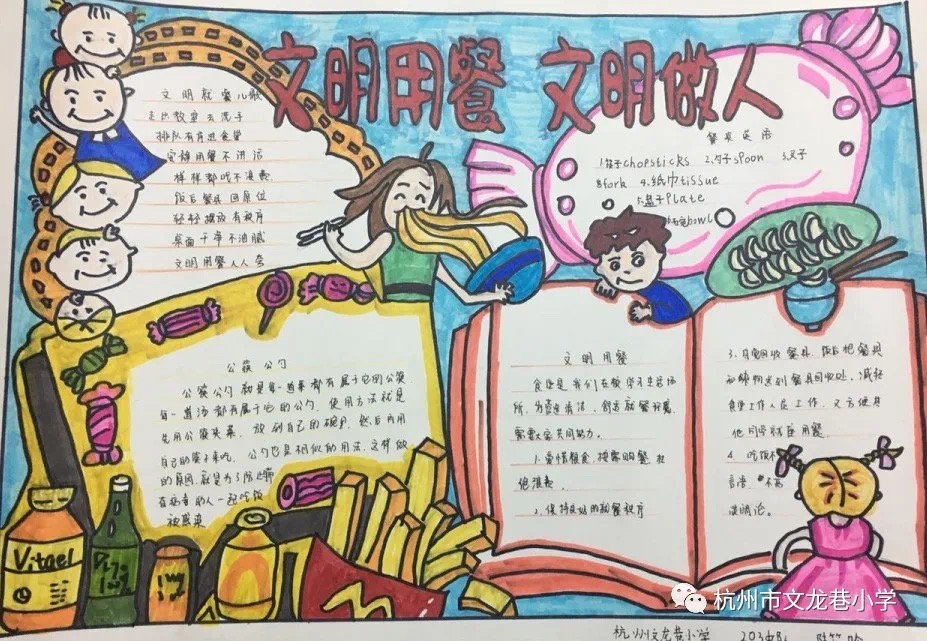 文明用餐 文明做人
文明就餐儿歌
走出教室去洗手
排队有序进食堂
安静用餐不讲话
样样都吃不浪费
饭后餐具回原位
轻轻摆放有秩序
桌面干净不油腻
文明用餐人人夸
餐具英语
1.筷子chopsticks 2.勺子spoon 3.叉子
fork 4.纸巾tissue
5.盘子plate
bowl
公筷 公勺
公筷公勺就是每一道菜都有属于它的公筷
每一道汤都有属于它的公勺，使用方法就是
先用公筷夹菜，放到自己的碗里，然后再用
自己的筷子来吃，公勺也是相似的用法，这样做
的原因，就是为了防止
在病毒的人一起吃饭
被感染
文明用餐
食堂是我们在校学习生活场
所，为营造清洁、舒适就餐环境，
需要大家共同努力。
1.爱惜粮食，按需用餐，杜
绝浪费。
2.保持良好的就餐秩序
3.自觉回收餐具，饭后把餐具
和 物送到餐具回收处，减轻
食堂工作人员工作，又方便其
他同学就座用餐。
4.吃饭不
言语，不高
谈阔论。
Vitael
杭州市文龙巷小学
杭州文龙巷小学 203